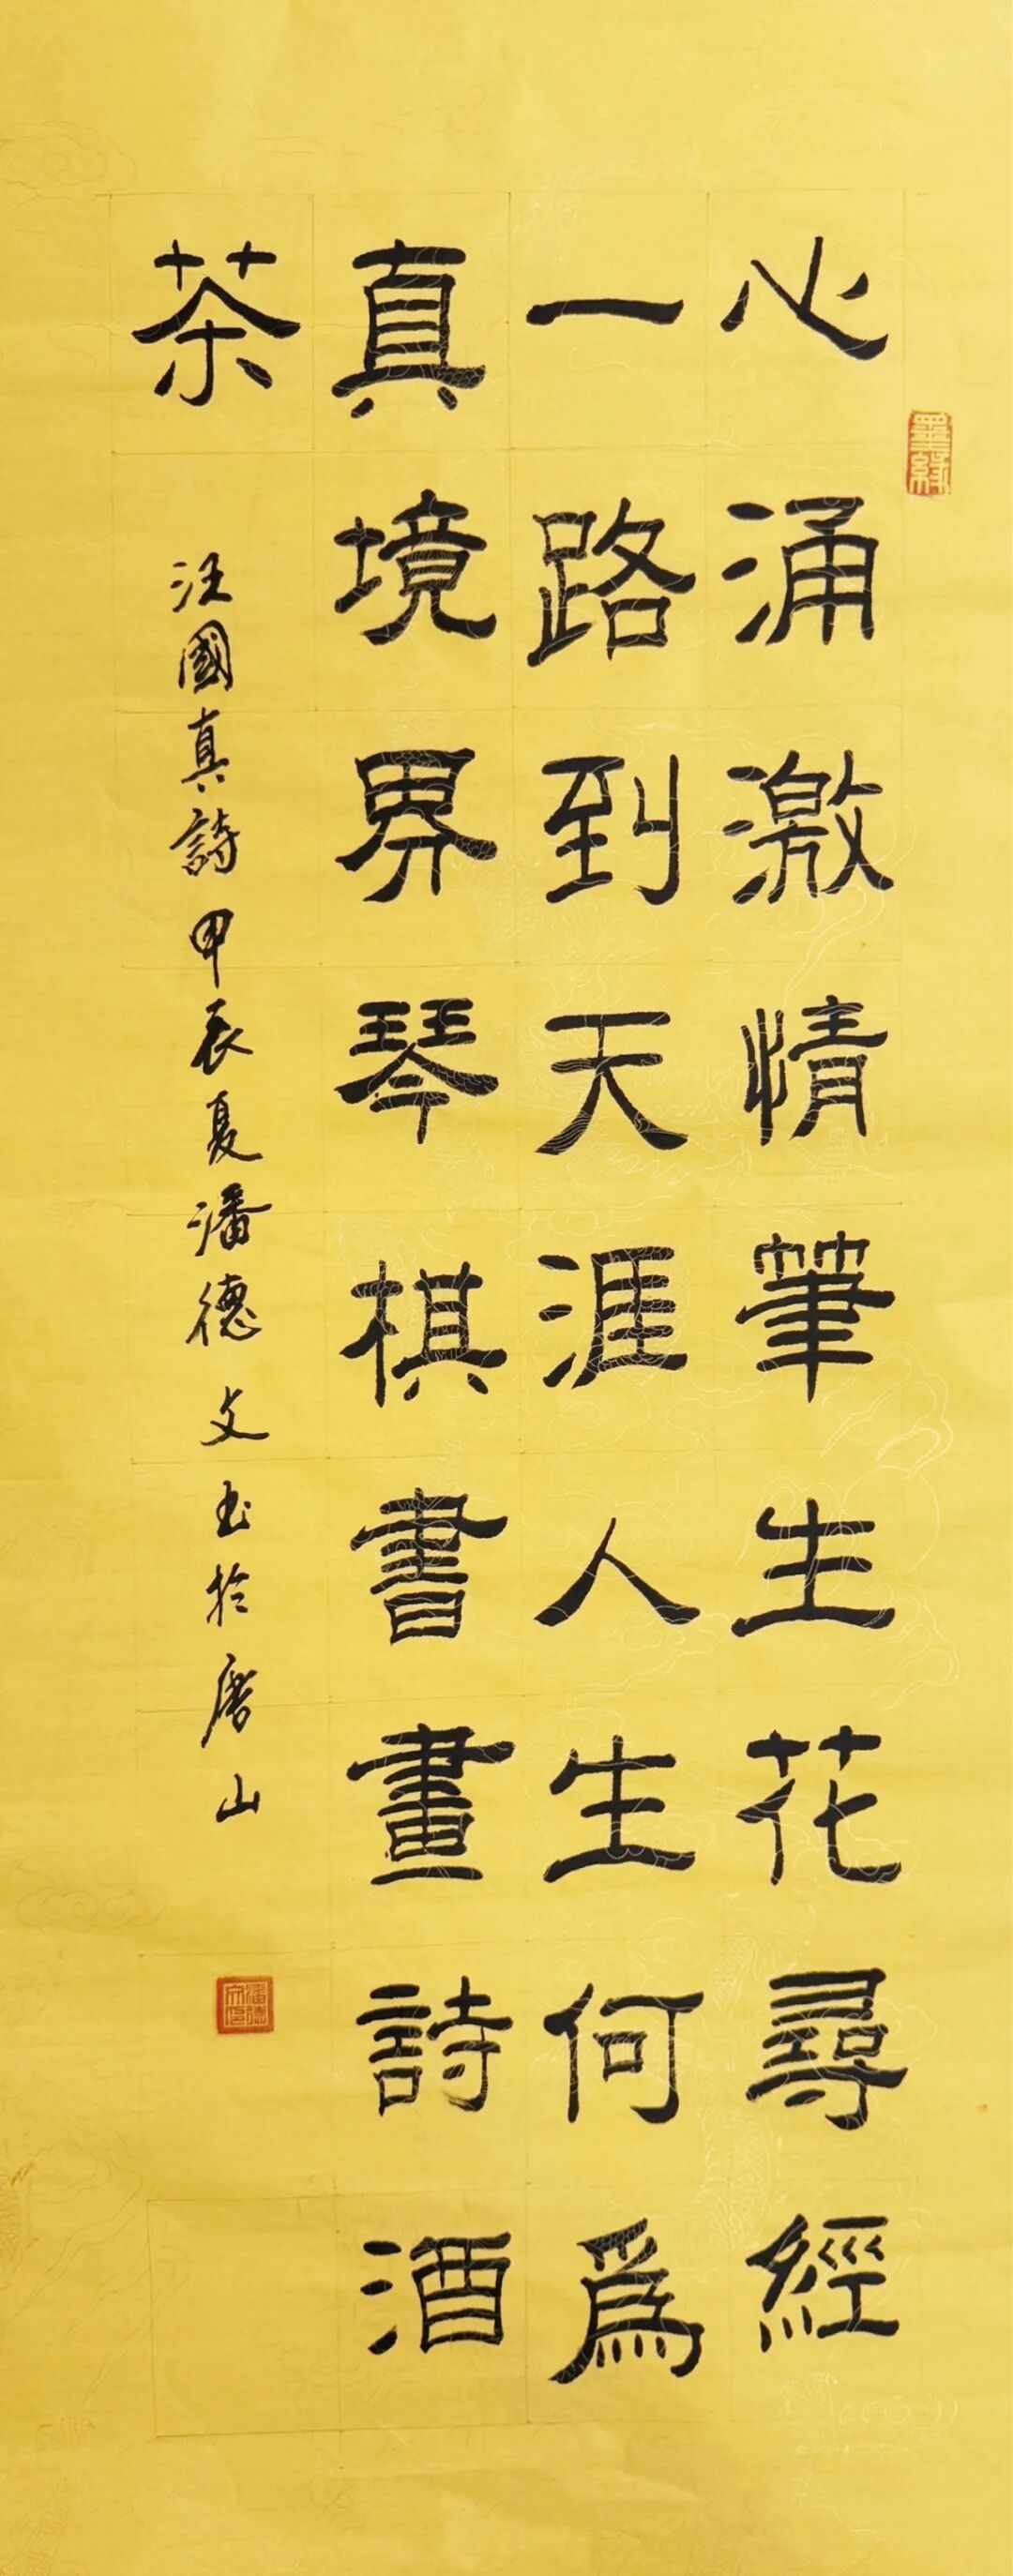 心涌激情筆生花尋經
一路到天涯人生何為
真境界琴棋書畫詩酒
茶
汪國真詩甲辰夏潘德文书於唐山
墨緣
潘德文印